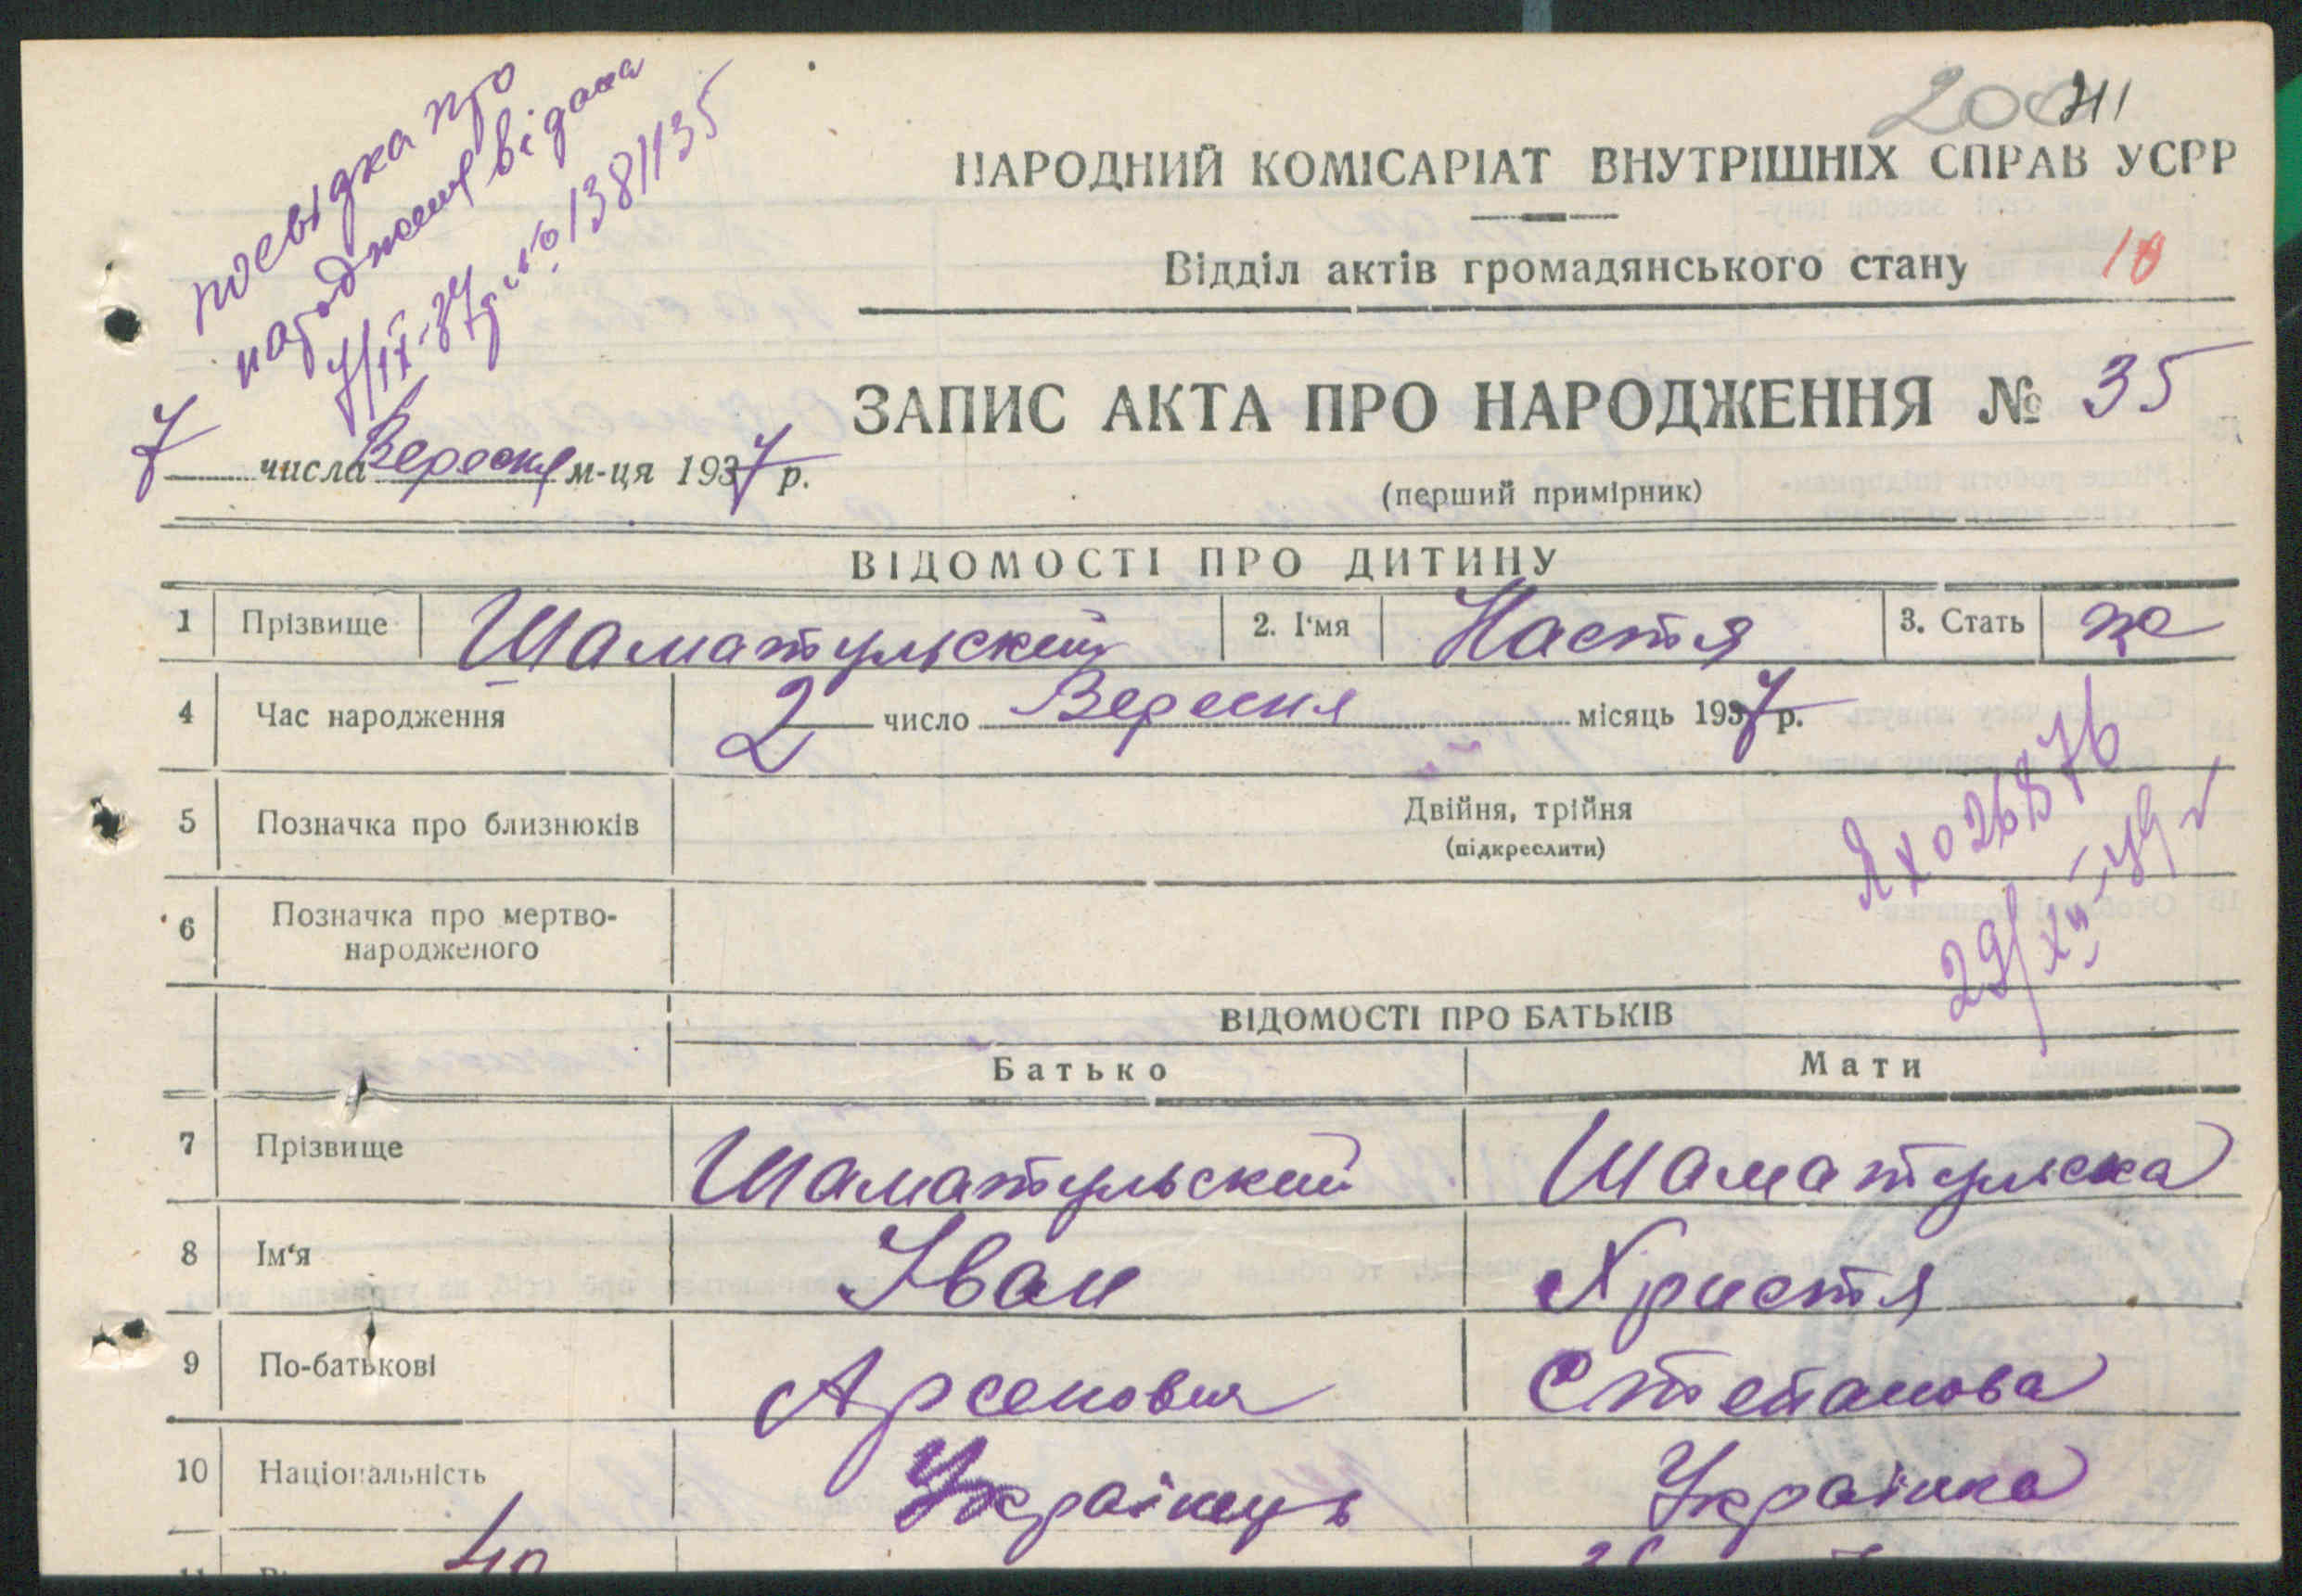 посвідка про
народження відана
7/ІХ-37 р. № 1381135
200 711
НАРОДНИЙ КОМІСАРІАТ ВНУТРІШНІХ СПРАВ УСРР
Відділ актів громадянського стану 10
ЗАПИС АКТА ПРО НАРОДЖЕННЯ № 35
7 числа Вересня м-ця 1937 р.
(перший примірник)
ВІДОМОСТІ ПРО ДИТИНУ
1 Прізвище Шаматульский 2. І'мя Настя 3. Стать жо
4 Час народження 2 число Вересня місяць 1937 р.
5 Позначка про близнюків Двійня, трійня
(підкреслити)
ЯХ 026876
29/XII-49 г
6 Позначка про мертво-
народженого
ВІДОМОСТІ ПРО БАТЬКІВ
Батько Мати
7 Прізвище Шаматульский Шаматульска
8 Ім'я Іван Христя
9 По-батькові Арсенович Степанова
10 Національність Українець Українка